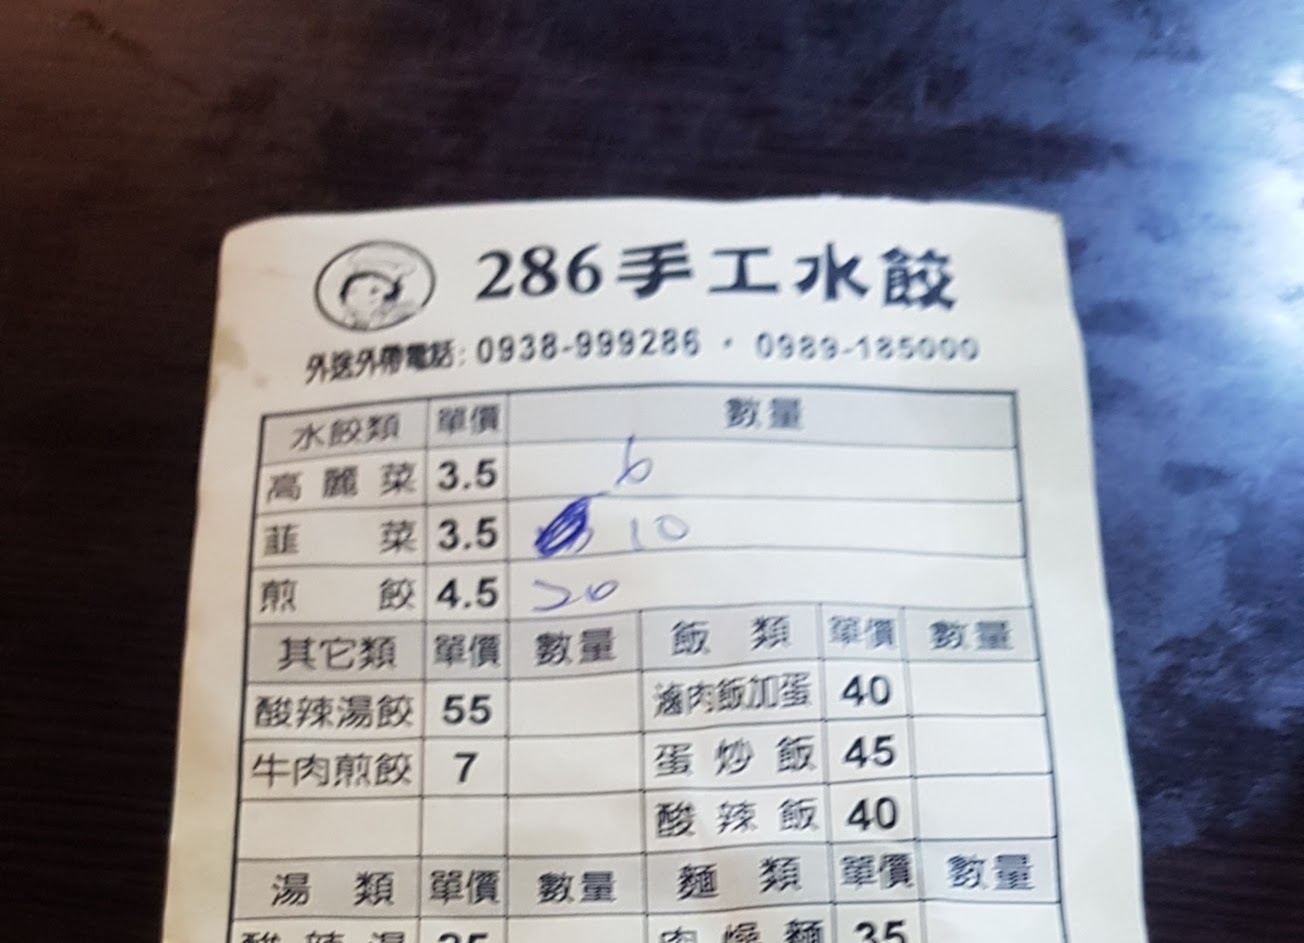 286手工水餃
外送外帶電話: 0938-999286 · 0989-185000
水餃類 單價 數量
高麗菜 3.5 6
韮菜 3.5 10
煎餃 4.5 20
其它類 單價 數量 飯類 單價 數量
酸辣湯餃 55 滷肉飯加蛋 40
牛肉煎餃 7 蛋炒飯 45
酸辣飯 40
湯類 單價 數量 麵類 單價 數量
酸辣湯 肉燥麵 35